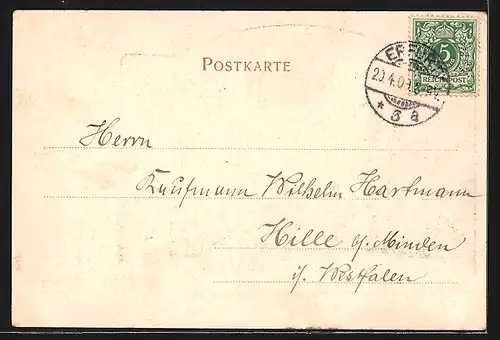 POSTKARTE
5
REICHSPOST
* 3 a
Herrn
Kaufmann Wilhelm Hartmann
Hille b/ Minden
i/ Westfalen